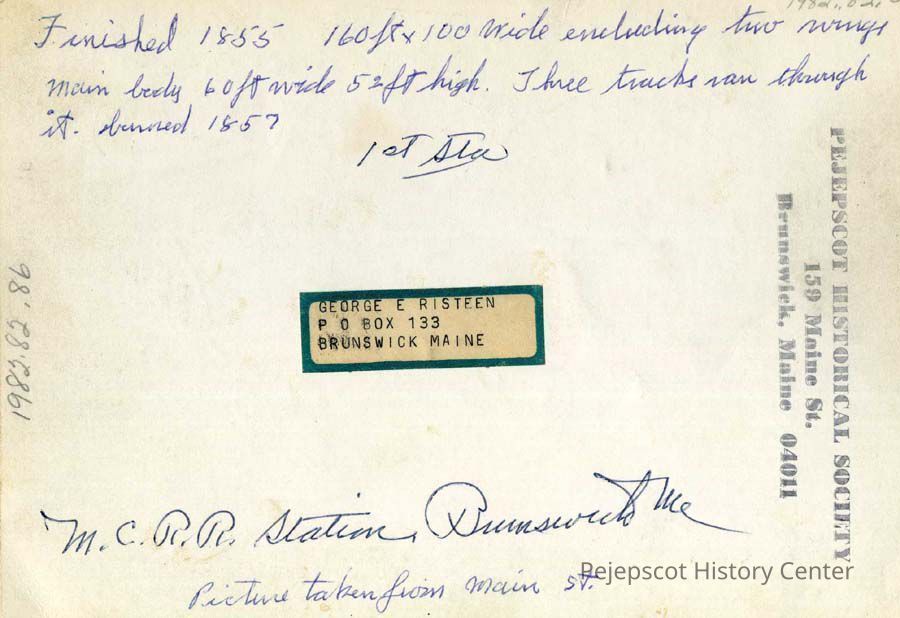 Finished 1855 160ft x 100 wide encluding two wings
main body 60ft wide 52ft high. Three tracks ran through
it. burned 1857
1st Sta
GEORGE E RISTEEN
P O BOX 133
BRUNSWICK MAINE
PEJEPSCOT HISTORICAL SOCIETY
159 Maine St.
Brunswick, Maine 04011
1982.82.86
M.C.R.R. Station, Brunswick Me
Picture taken from Main St.
Pejepscot History Center